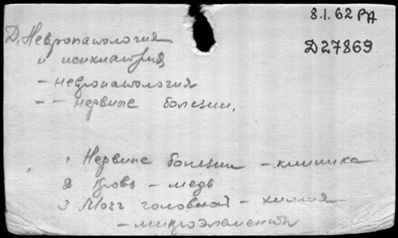 8.1.62 РА
Д27869
Д. Невропатология
и психиатрия
- невропатология
- - нервные болезни.
1 Нервные болезни - клиника
2 Кровь - медь
3 Мозг головной - химия
- микроэлементы